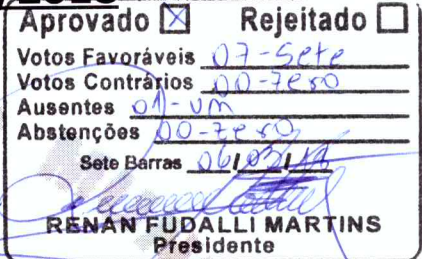 Aprovado ☒ Rejeitado ☐
Votos Favoráveis 07-Sete
Votos Contrários 00-Zero
Ausentes 01-um
Abstenções 00-zero
Sete Barras 06/03/
RENAN FUDALLI MARTINS
Presidente